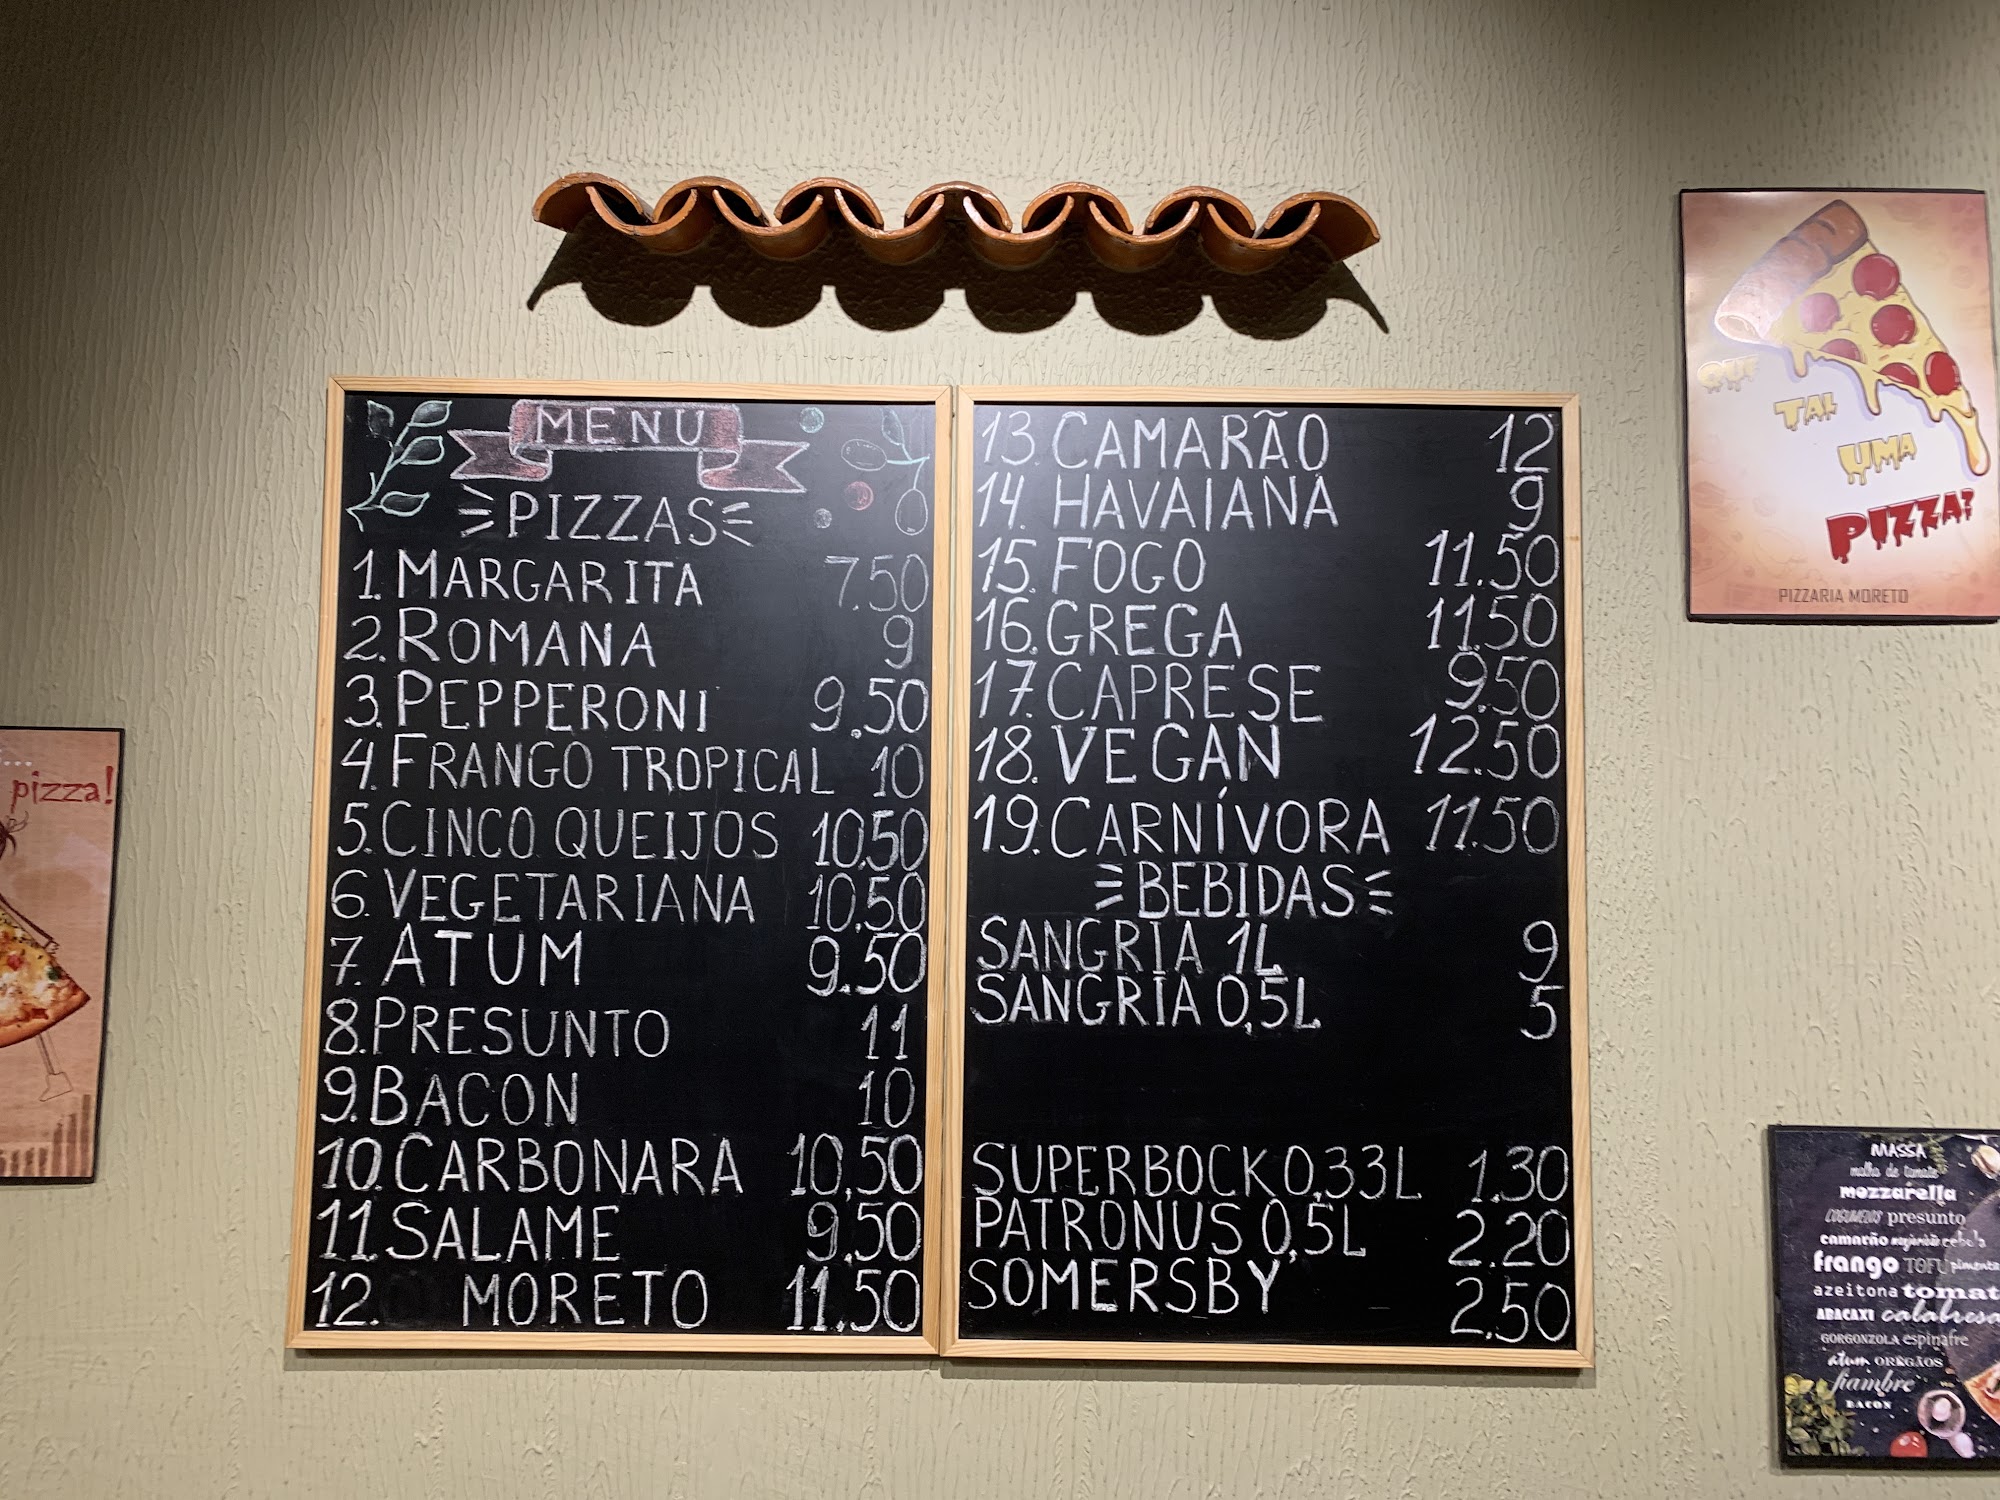 MENU
PIZZAS
1. MARGARITA 7.50
2. ROMANA 9
3. PEPPERONI 9.50
4. FRANGO TROPICAL 10
5. CINCO QUEIJOS 10.50
6. VEGETARIANA 10.50
7. ATUM 9.50
8. PRESUNTO 11
9. BACON 10
10. CARBONARA 10,50
11. SALAME 9,50
12. MORETO 11.50
13. CAMARÃO 12
14. HAVAIANA 9
15. FOGO 11.50
16. GREGA 11.50
17. CAPRESE 9.50
18. VEGAN 12.50
19. CARNÍVORA 11.50
BEBIDAS
SANGRIA 1L 9
SANGRIA 0,5L 5
SUPERBOCK 0,33L 1.30
PATRONUS 0,5L 2.20
SOMERSBY 2.50
QUE
TAL
UMA
PIZZA?
PIZZARIA MORETO
pizza!
MASSA
molho de tomate
mozzarella
COGUMELOS presunto
camarão manjericão cebola
frango TOFU pimenta
azeitona tomat
ABACAXI calabresa
GORGONZOLA espinafre
atum ORÉGÃOS
fiambre
BACON